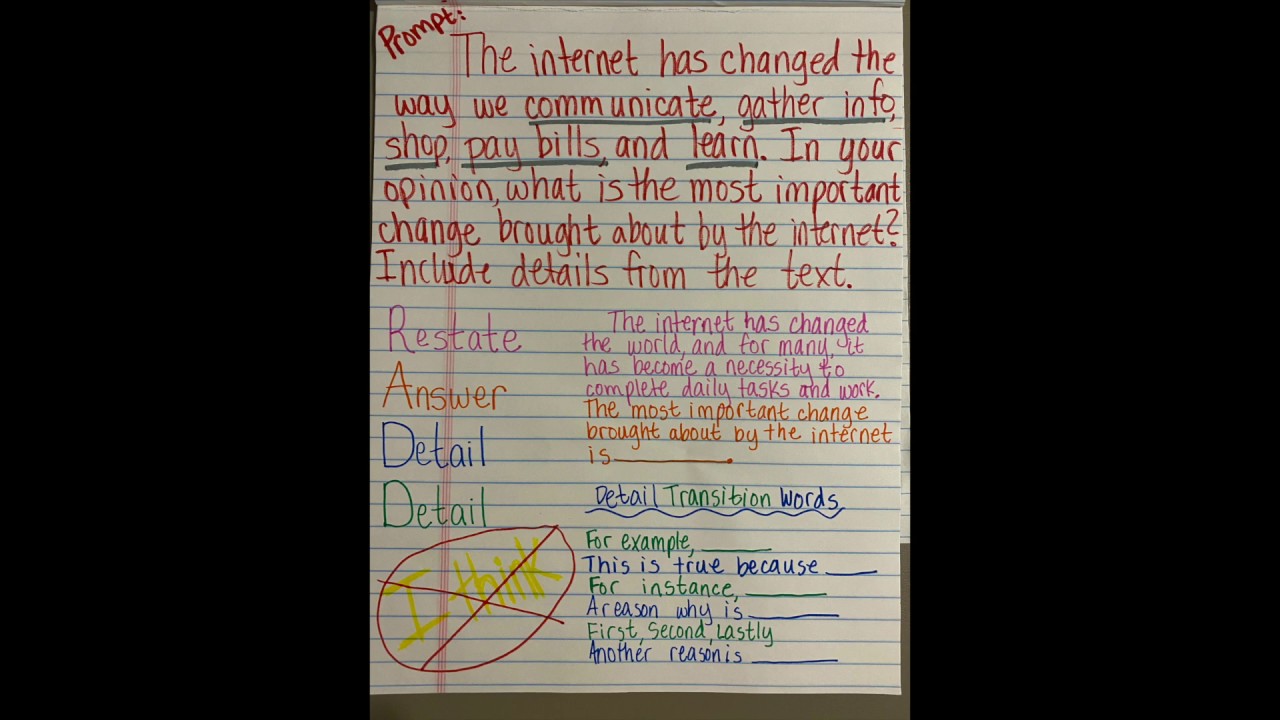 Prompt:
The internet has changed the
way we communicate, gather info,
shop, pay bills, and learn. In your
opinion, what is the most important
change brought about by the internet?
Include details from the text.
Restate
The internet has changed
the world, and for many, it
has become a necessity to
complete daily tasks and work.
Answer
The most important change
brought about by the internet
is________.
Detail
Detail
Detail Transition Words
I think
For example, ______
This is true because ____
For instance, ______
A reason why is ______
First, Second, Lastly
Another reason is ______